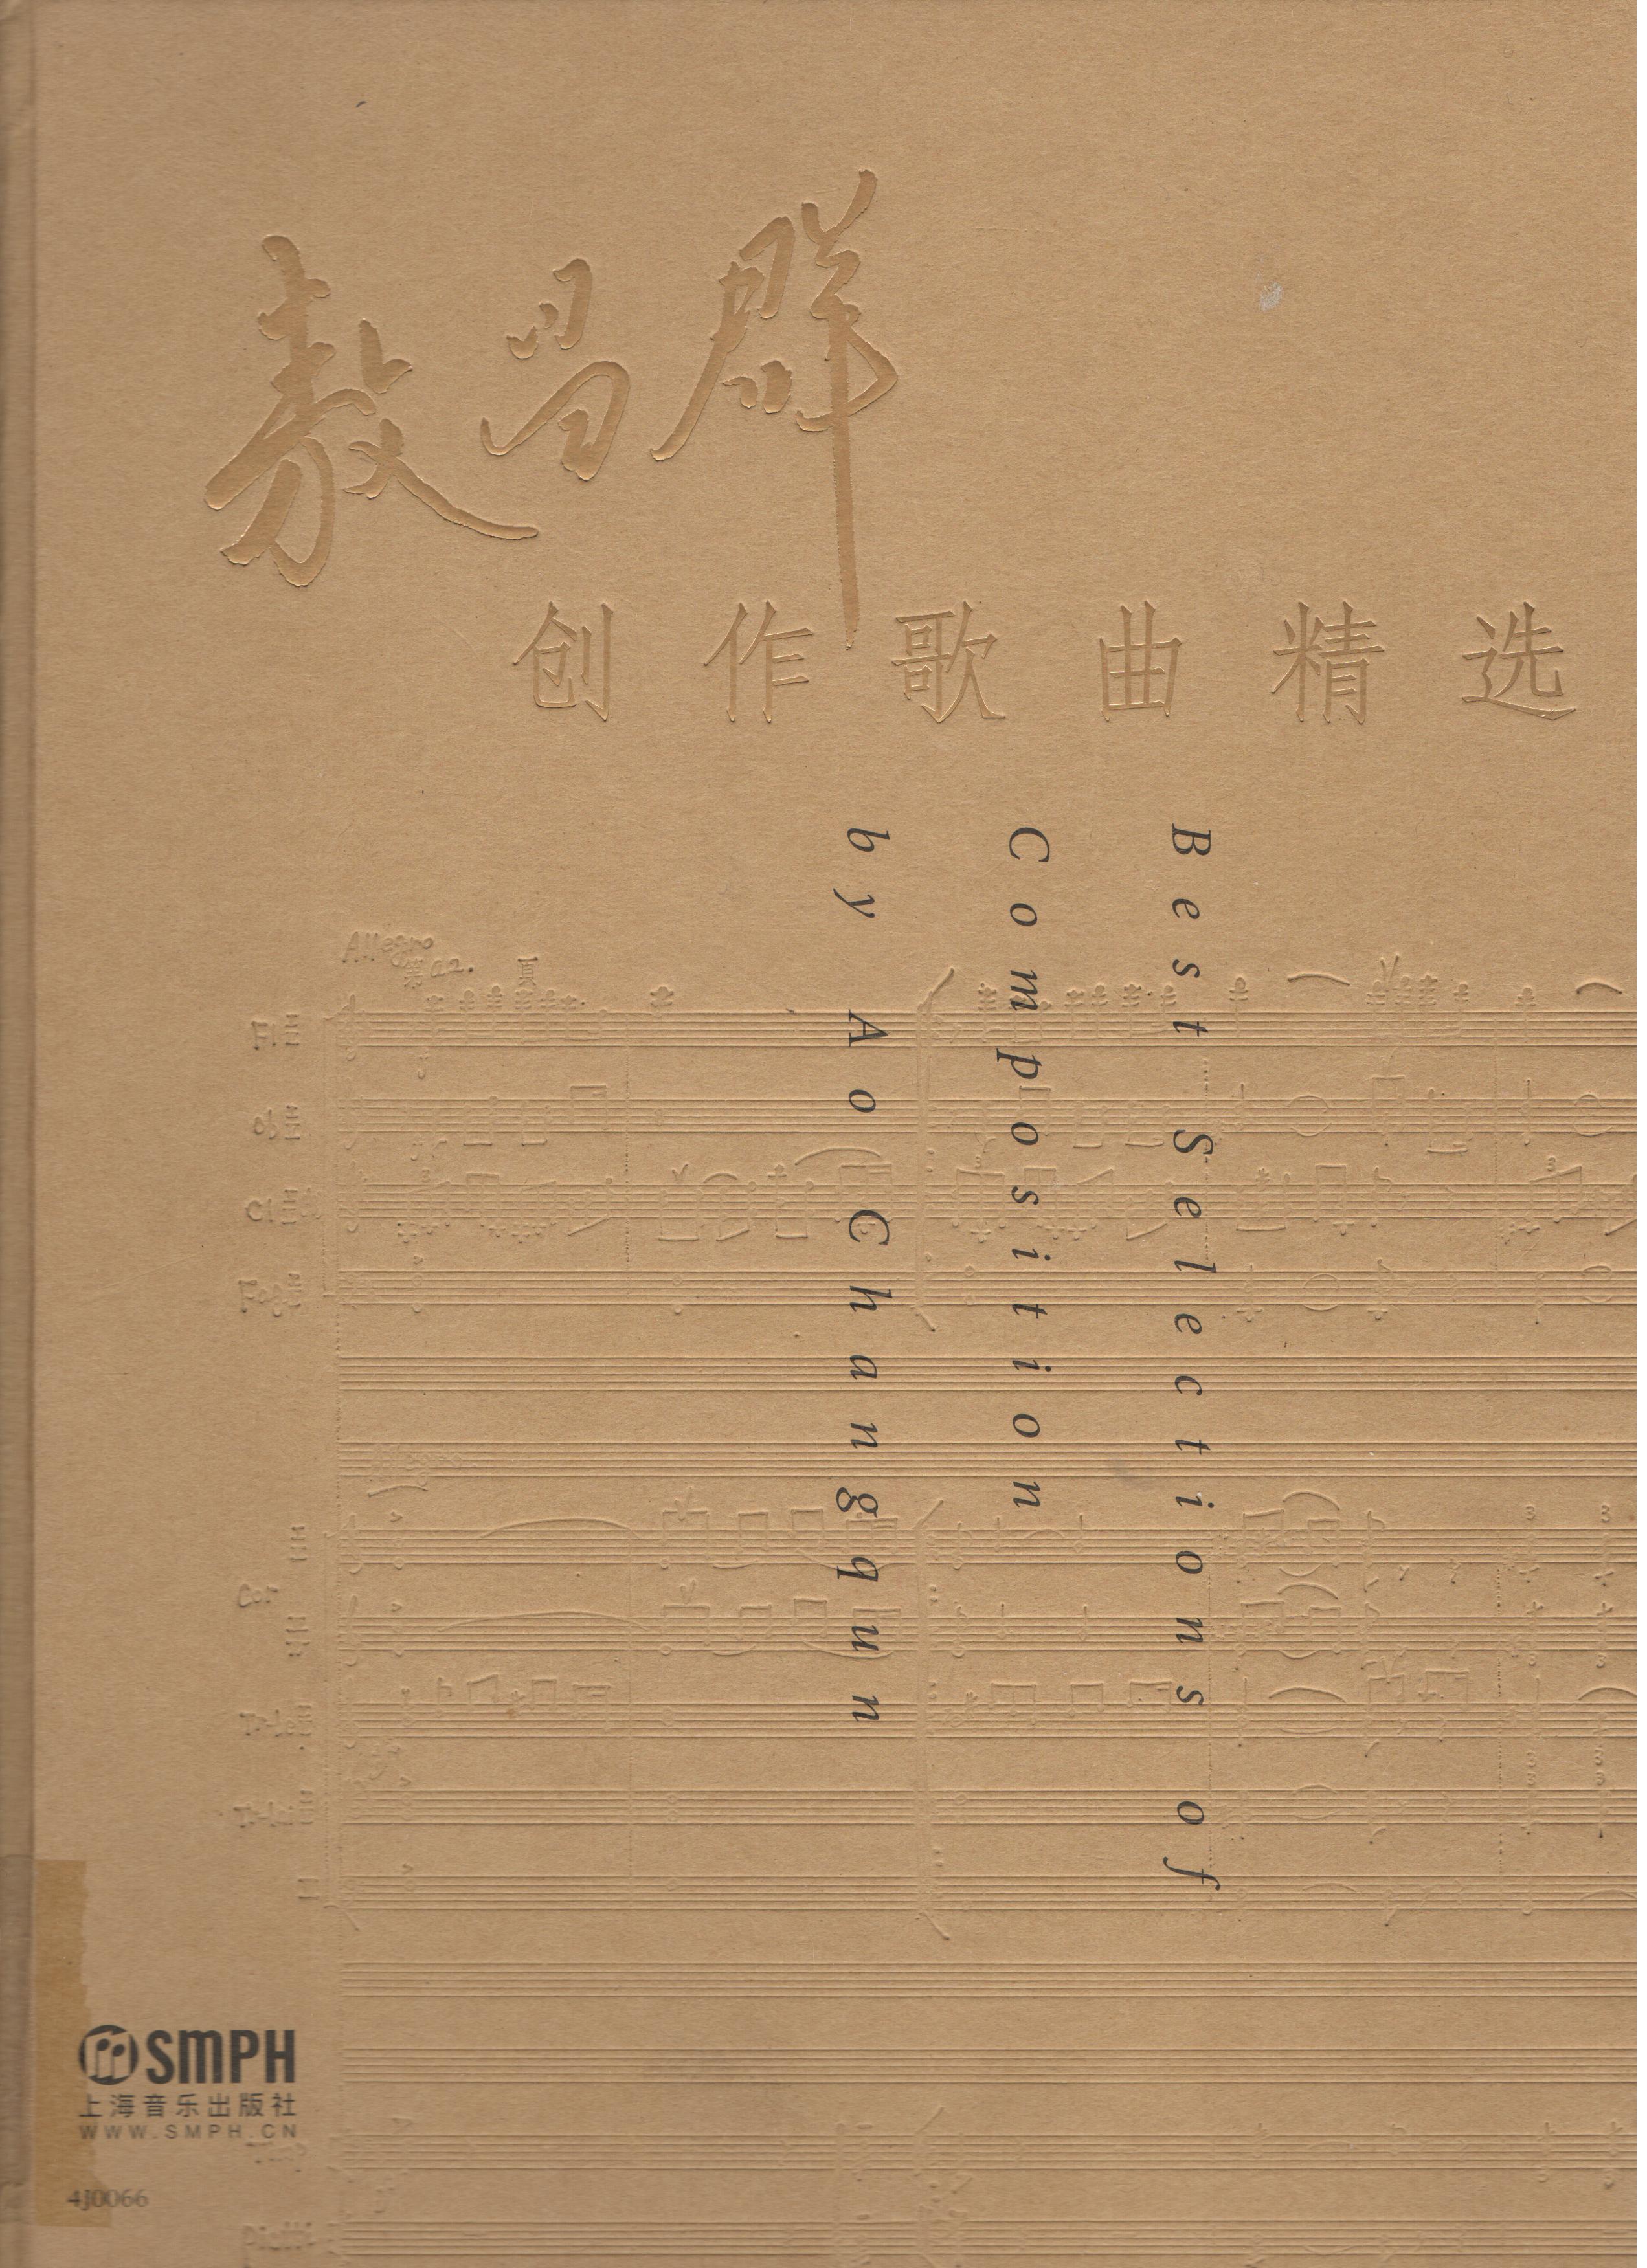 敖昌群
创作歌曲精选
Best Selections of
Composition
by Ao Changqun
Allegro
第 a2. 頁
Fl
Ob
Cl
Fag
Cor
SMPH
上海音乐出版社
WWW.SMPH.CN
4J0066
Piatti